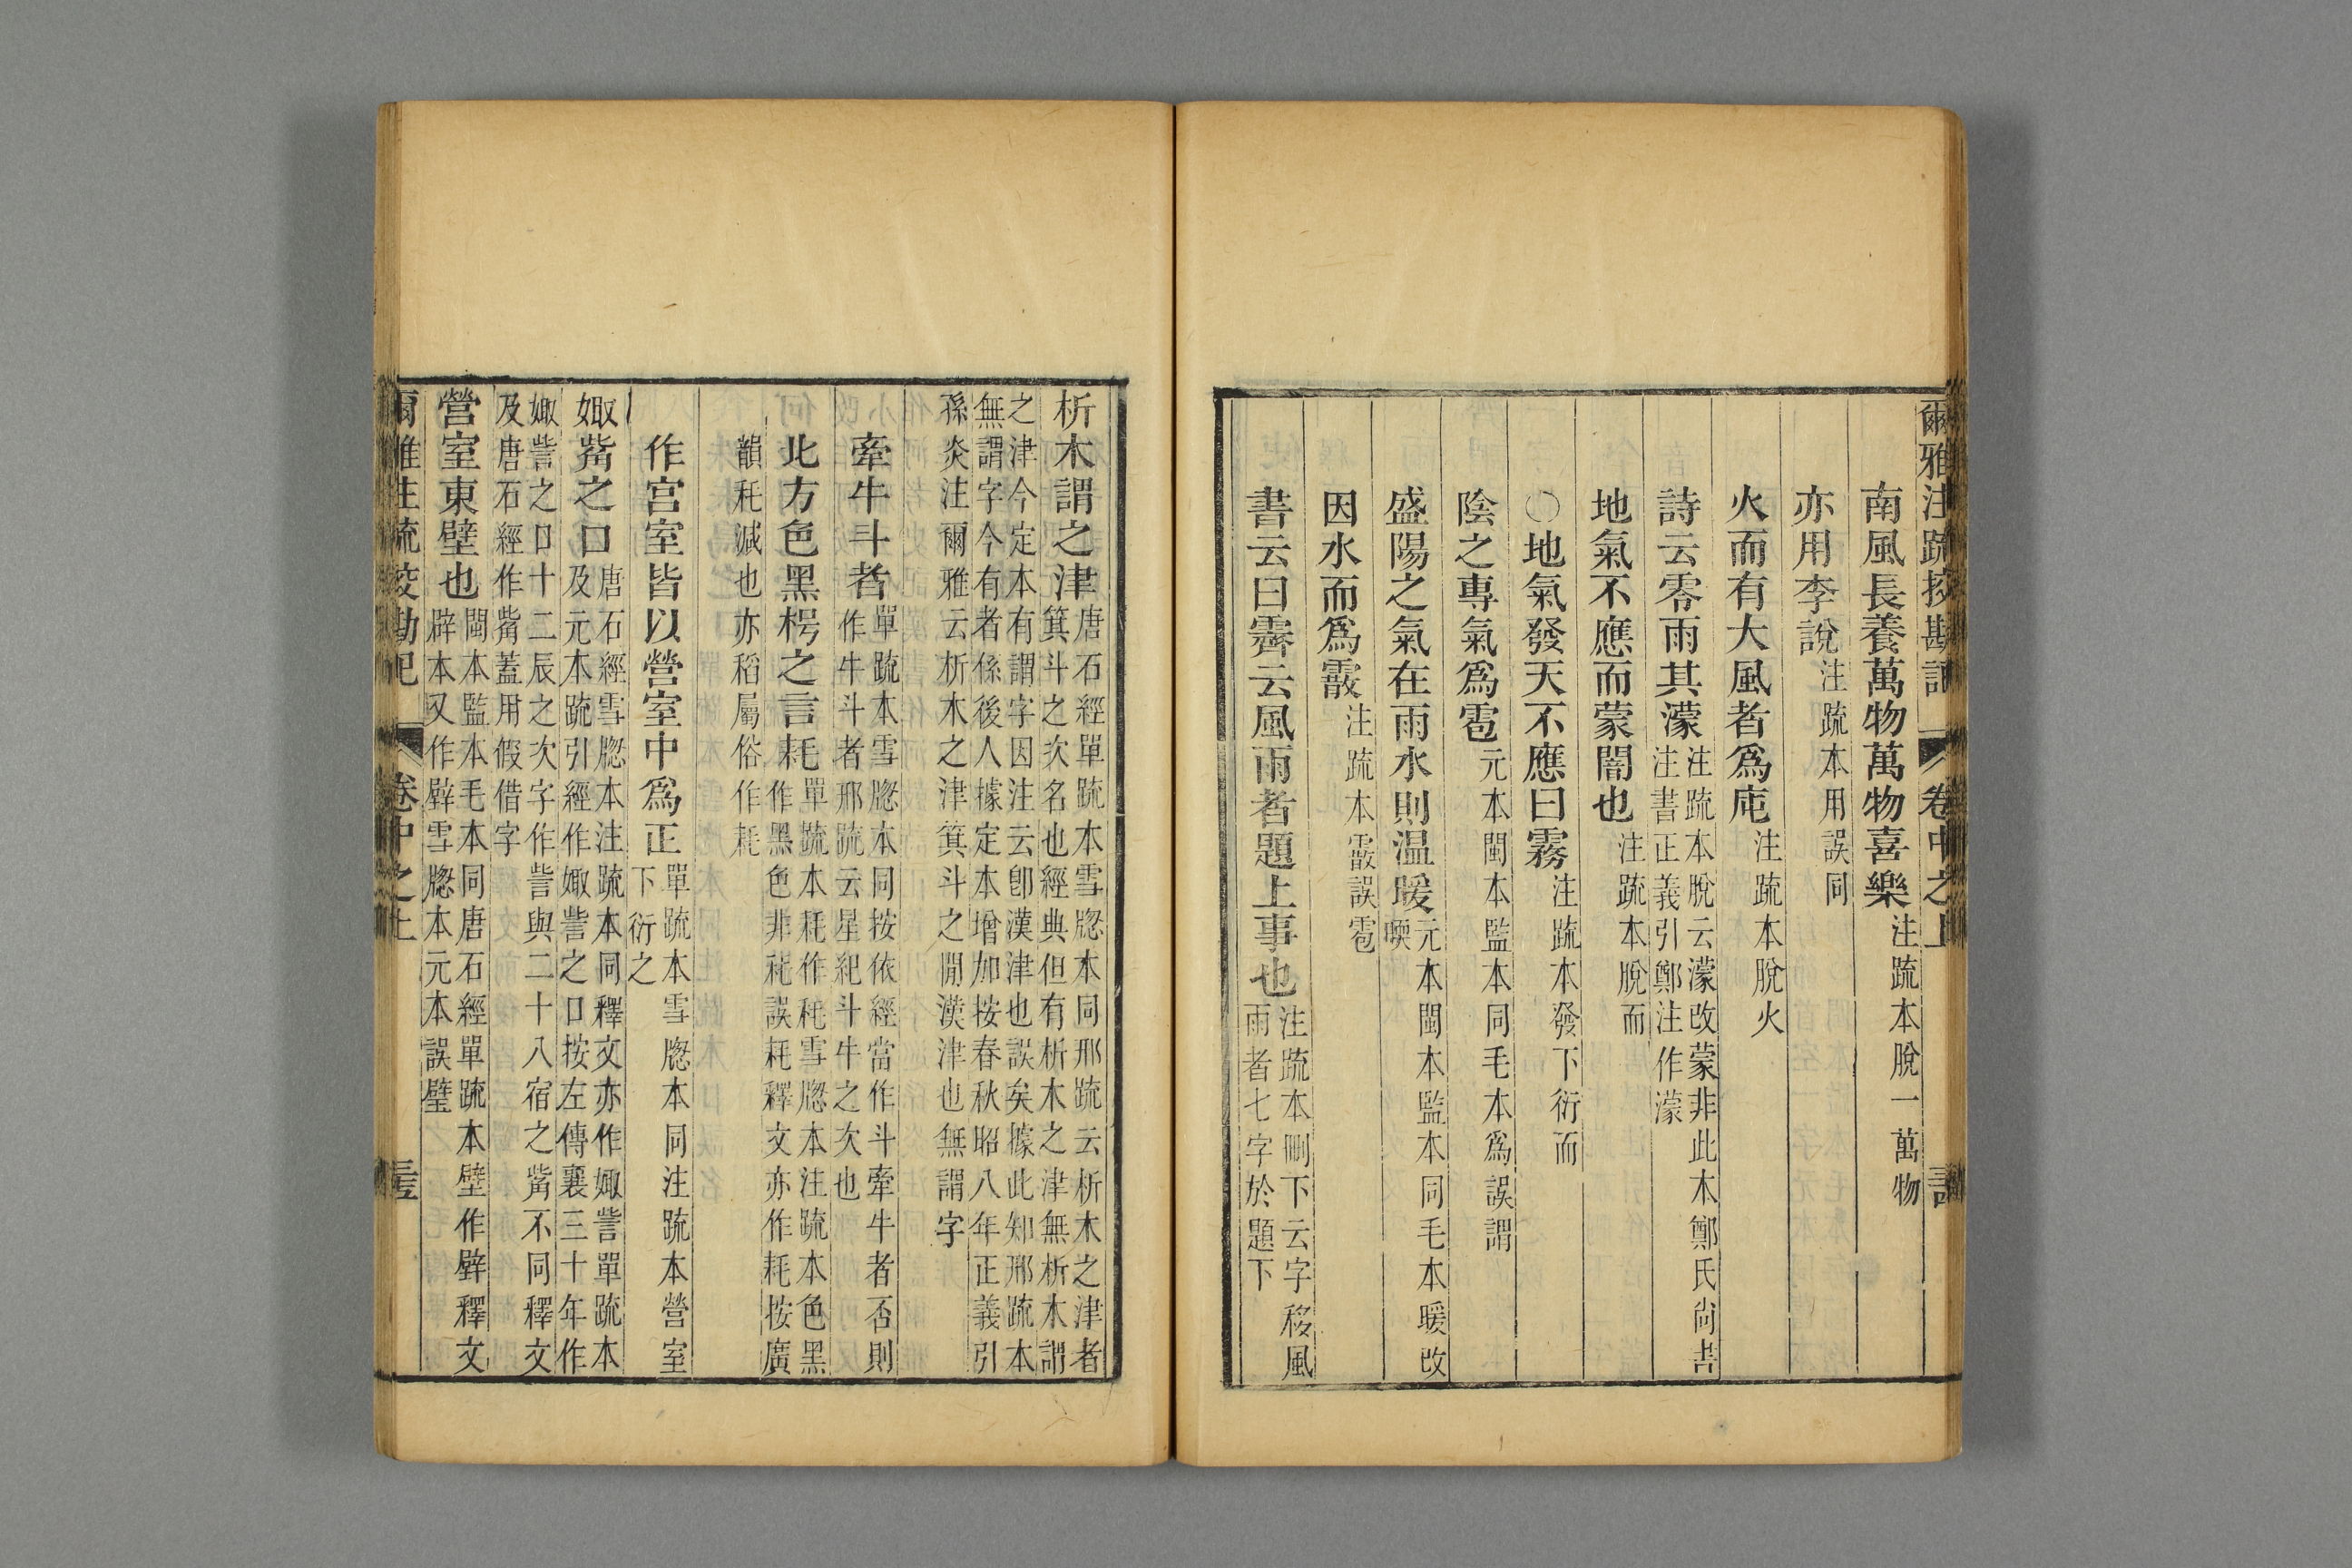 爾雅注疏挍勘記 卷中之上
南風長養萬物萬物喜樂注疏本脫一萬物
亦用李說注疏本用誤同
火而有大風者爲庉注疏本脫火
詩云零雨其濛注疏本脫云濛改蒙非此本鄭氏尚書
注書正義引鄭注作濛
地氣不應而蒙闇也注疏本脫而
〇地氣發天不應曰霧注疏本發下衍而
陰之專氣爲雹元本閩本監本同毛本爲誤謂
盛陽之氣在雨水則温暖元本閩本監本同毛本暖改
㬉
因水而爲霰注疏本霰誤雹
書云曰霽云風雨者題上事也注疏本刪下云字移風
雨者七字於題下
析木謂之津唐石經單疏本雪牕本同邢疏云析木之津者
箕斗之次名也經典但有析木之津無析木謂
之津今定本有謂字因注云卽漢津也誤矣據此知邢疏本
無謂字今有者係後人據定本增加按春秋昭八年正義引
孫炎注爾雅云析木之津箕斗之閒漢津也無謂字
牽牛斗者單疏本雪牕本同按依經當作斗牽牛者否則
作牛斗者邢疏云星紀斗牛之次也
北方色黑枵之言耗單疏本耗作秏雪牕本注疏本色黑
作黑色非秏誤耗釋文亦作耗按廣
韻秏減也亦稻屬俗作耗
作宮室皆以營室中爲正單疏本雪牕本同注疏本營室
下衍之
娵觜之口唐石經雪牕本注疏本同釋文亦作娵訾單疏本
及元本疏引經作娵訾之口按左傳襄三十年作
娵訾之口十二辰之次字作訾與二十八宿之觜不同釋文
及唐石經作觜蓋用假借字
營室東壁也閩本監本毛本同唐石經單疏本壁作辟釋文
辟本又作壁雪牕本元本誤璧
爾雅注疏挍勘記 卷中之上